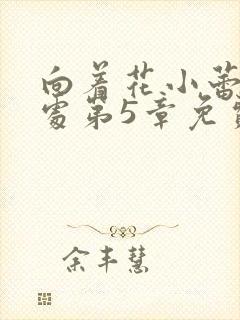 向着花小蕾
处第5章免费
余丰慧